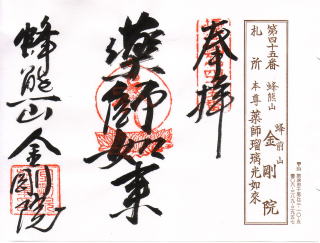 奉拝
薬師如来
蜂熊山 金剛院
第四十五番
札所
蜂熊山
金剛院
本尊 薬師瑠璃光如來